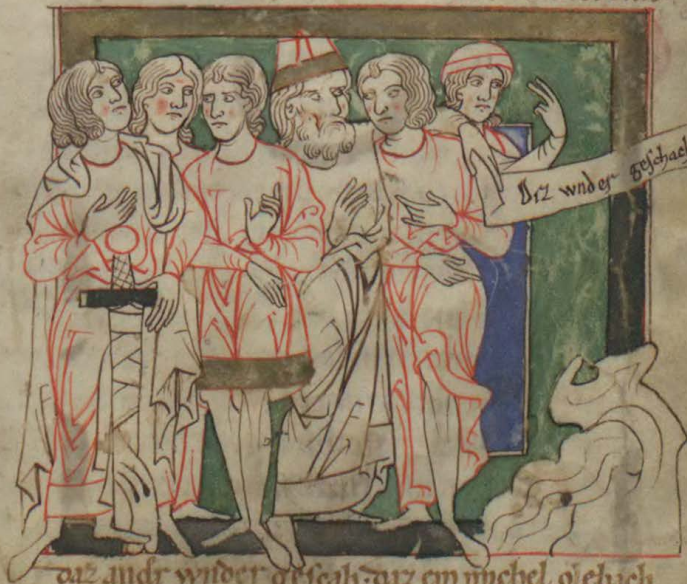 Diz wnder geschach
daz andr wnder gescah. daz ein michel olebach